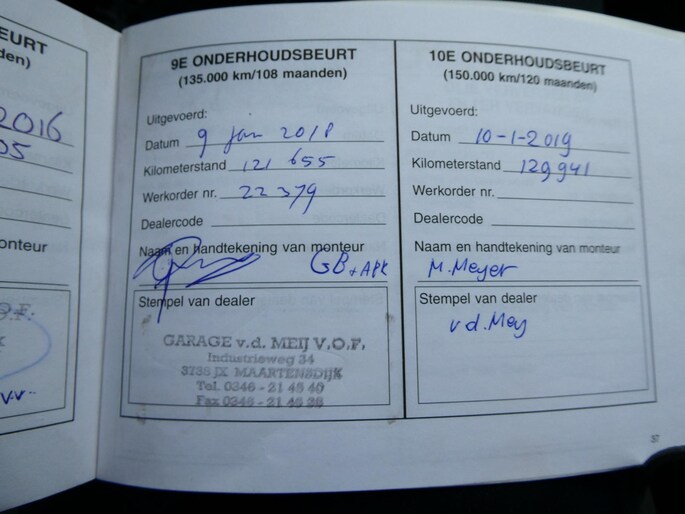 EURT
den)
2016
05
onteur
O.F.
K
v.v.
9E ONDERHOUDSBEURT
(135.000 km/108 maanden)
Uitgevoerd:
Datum 9 jan 2018
Kilometerstand 121 655
Werkorder nr. 22379
Dealercode
Naam en handtekening van monteur
GB + APK
Stempel van dealer
GARAGE v.d. MEIJ V.O.F.
Industrieweg 34
3738 JX MAARTENSDIJK
Tel. 0346 - 21 45 40
Fax 0346 - 21 46 28
10E ONDERHOUDSBEURT
(150.000 km/120 maanden)
Uitgevoerd:
Datum 10-1-2019
Kilometerstand 129941
Werkorder nr.
Dealercode
Naam en handtekening van monteur
M. Meyer
Stempel van dealer
v.d. Mey
37